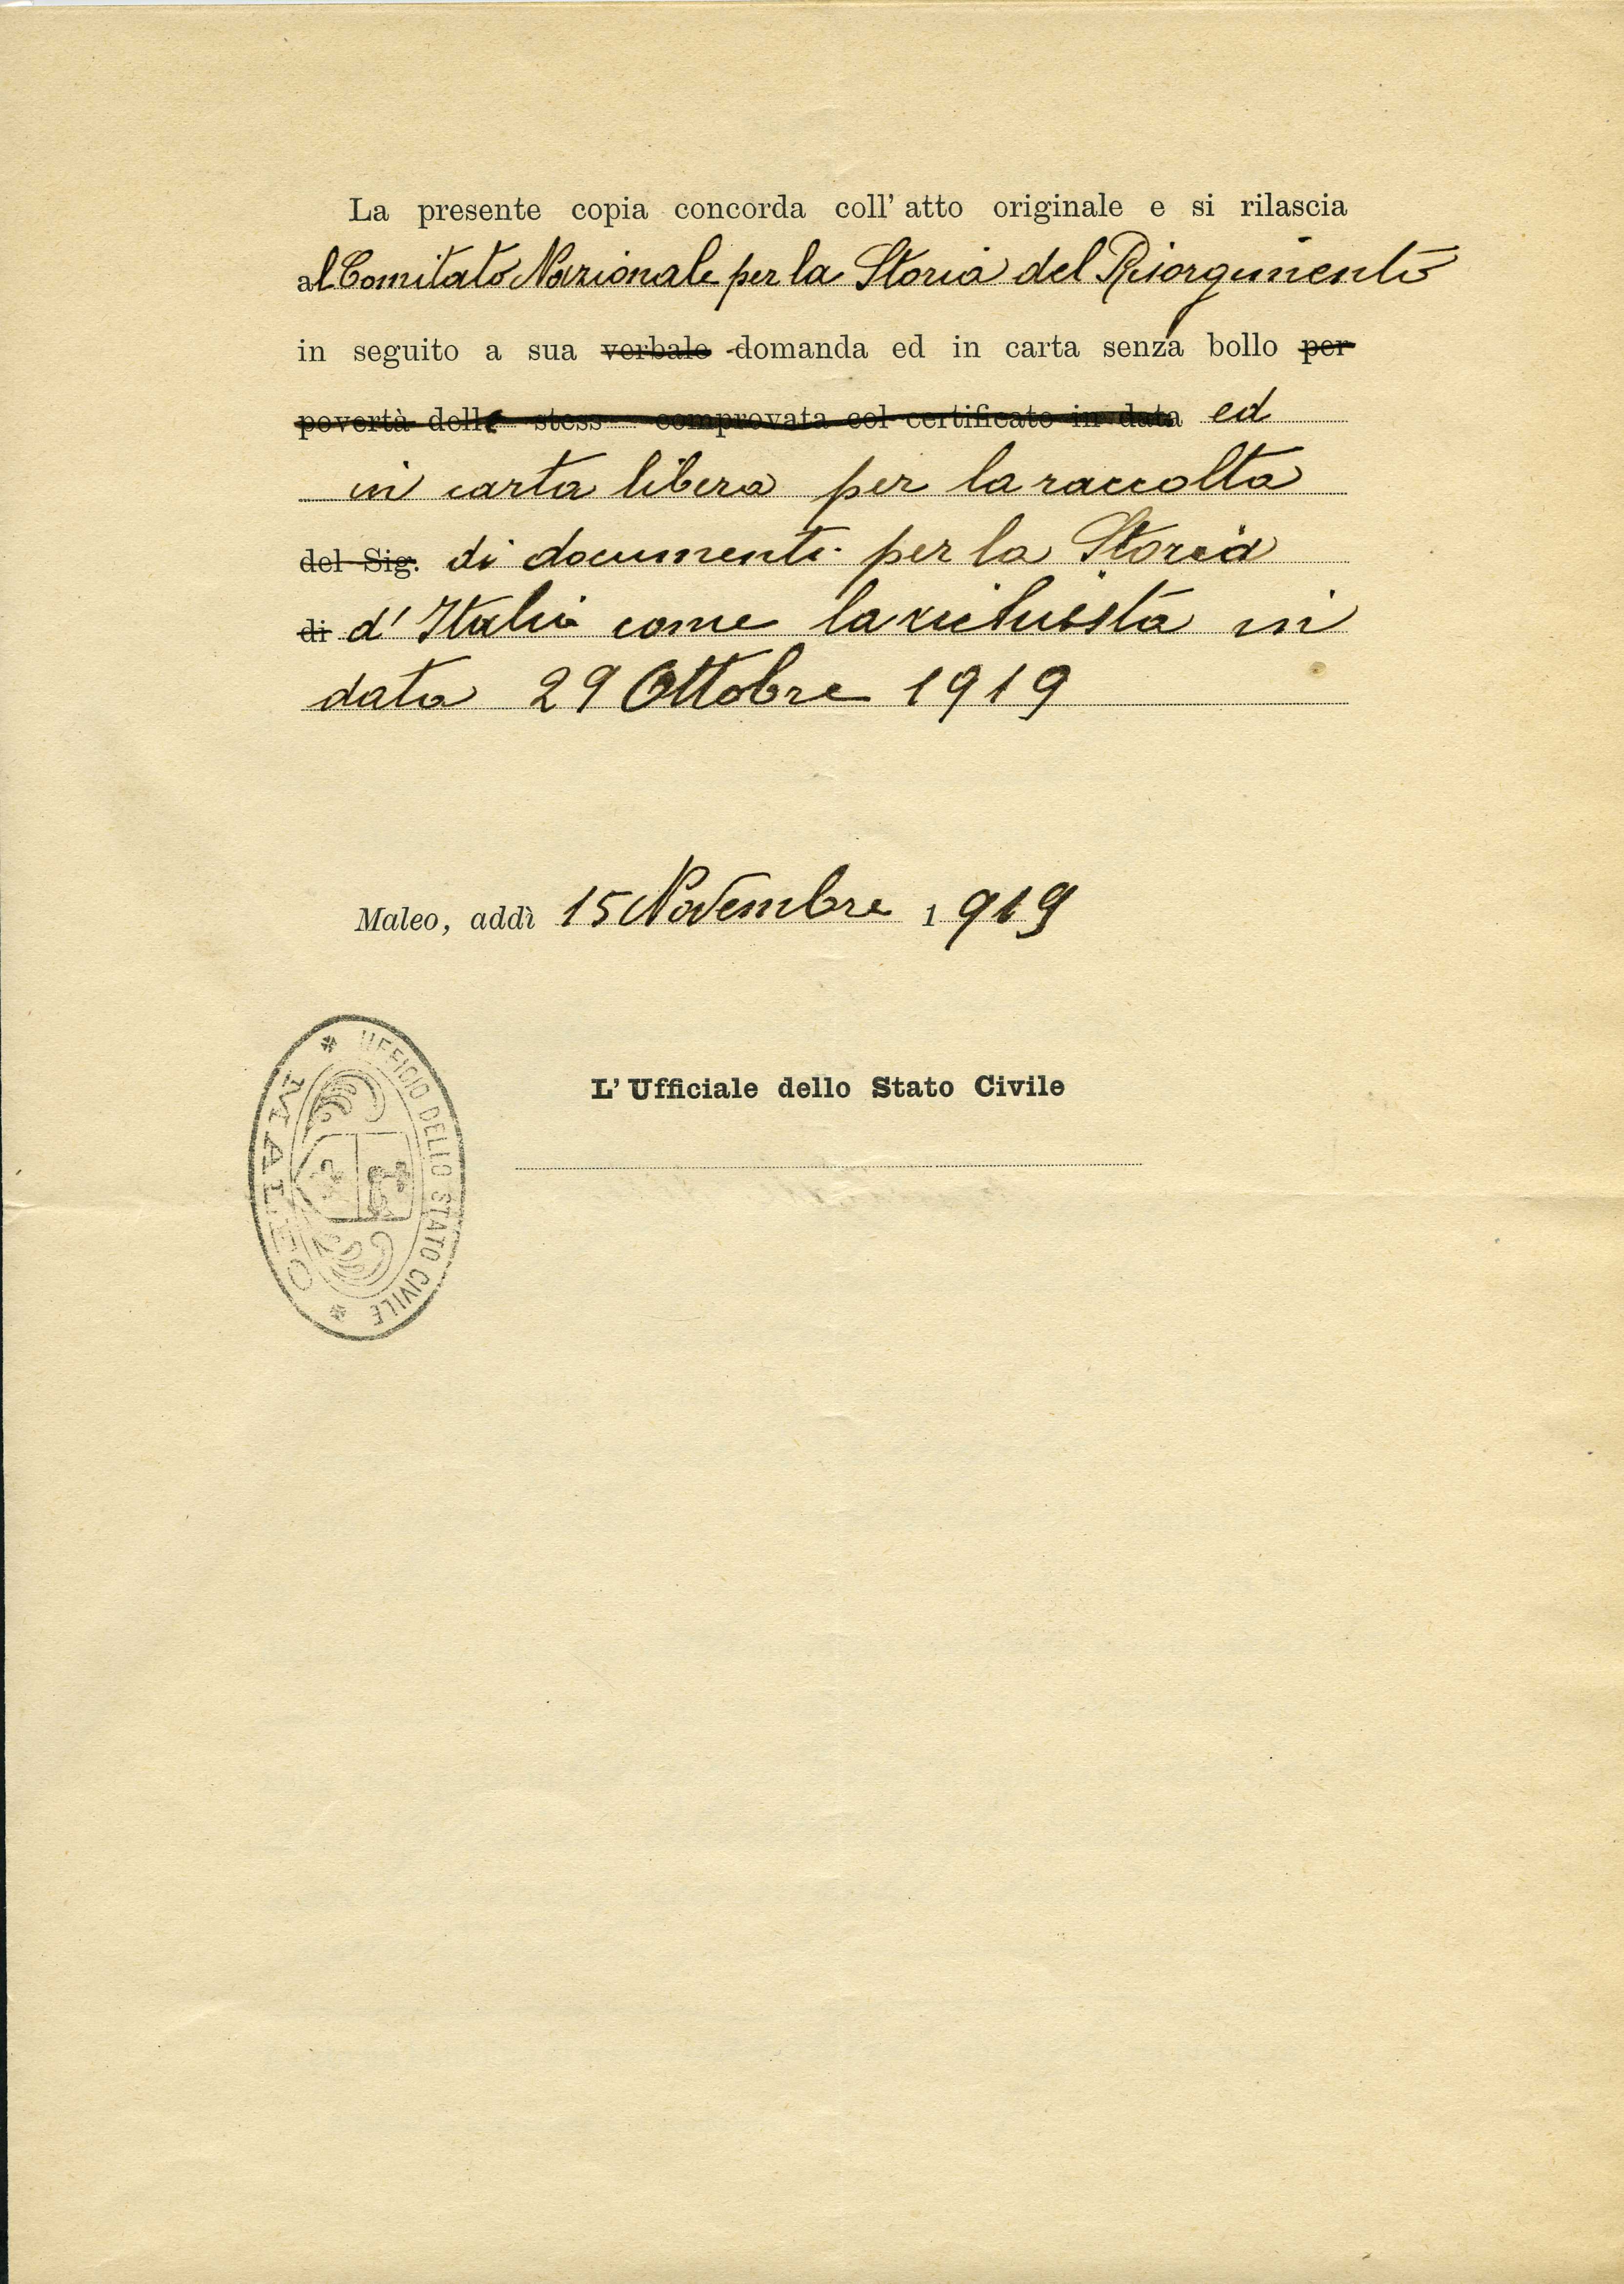 La presente copia concorda coll' atto originale e si rilascia
al Comitato Nazionale per la Storia del Risorgimento
in seguito a sua verbale domanda ed in carta senza bollo per
povertà dell stess comprovata col certificato in data ed
in carta libera per la raccolta
del Sig. di documenti per la Storia
di d' Italia come la richiesta in
data 29 Ottobre 1919
Maleo, addì 15 Novembre 1919
L' Ufficiale dello Stato Civile
UFFICIO DELLO STATO CIVILE
MALEO